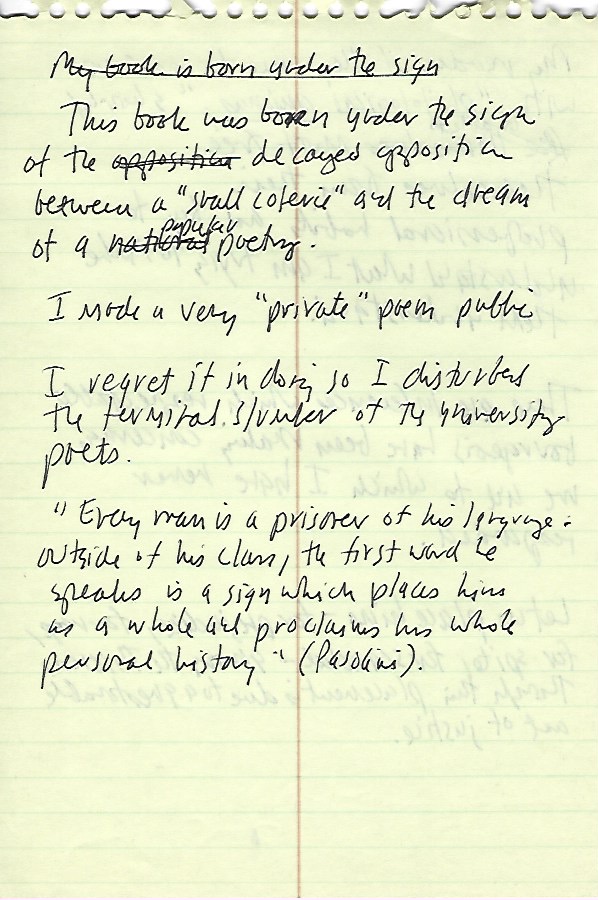 My book is born under the sign
This book was born under the sign
of the opposition decayed opposition
between a "small coterie" and the dream
popular
of a national poetry.
I made a very "private" poem public
I regret it in doing so I disturbed
the terminal slumber of the university
poets.
"Every man is a prisoner of his language:
outside of his class, the first word he
speaks is a sign which places him
as a whole and proclaims his whole
personal history" (Pasolini).